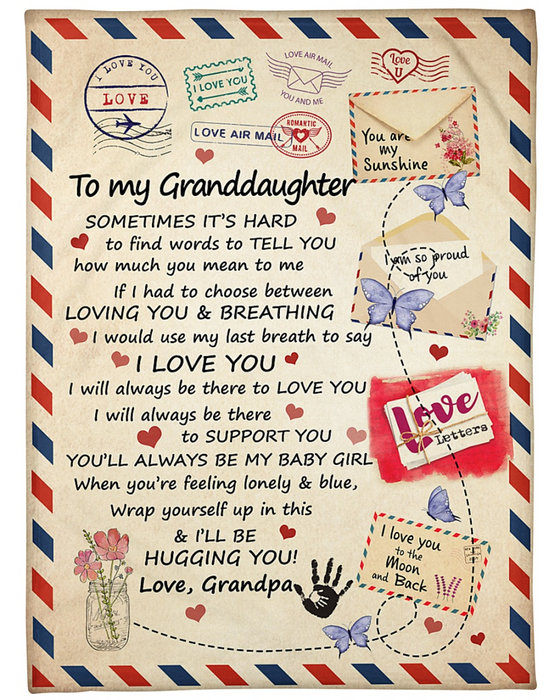 I LOVE YOU
LOVE
I LOVE YOU
LOVE AIR MAIL
YOU AND ME
Love
U
LOVE AIR MAIL
ROMANTIC
MAIL
You are
my
Sunshine
To my Granddaughter
SOMETIMES IT'S HARD
to find words to TELL YOU
how much you mean to me
I am so proud
of you
If I had to choose between
LOVING YOU & BREATHING
I would use my last breath to say
I LOVE YOU
I will always be there to LOVE YOU
I will always be there
to SUPPORT YOU
Love
Letters
YOU'LL ALWAYS BE MY BABY GIRL
When you're feeling lonely & blue,
Wrap yourself up in this
& I'LL BE
HUGGING YOU!
Love, Grandpa
I love you
to the
Moon
and Back